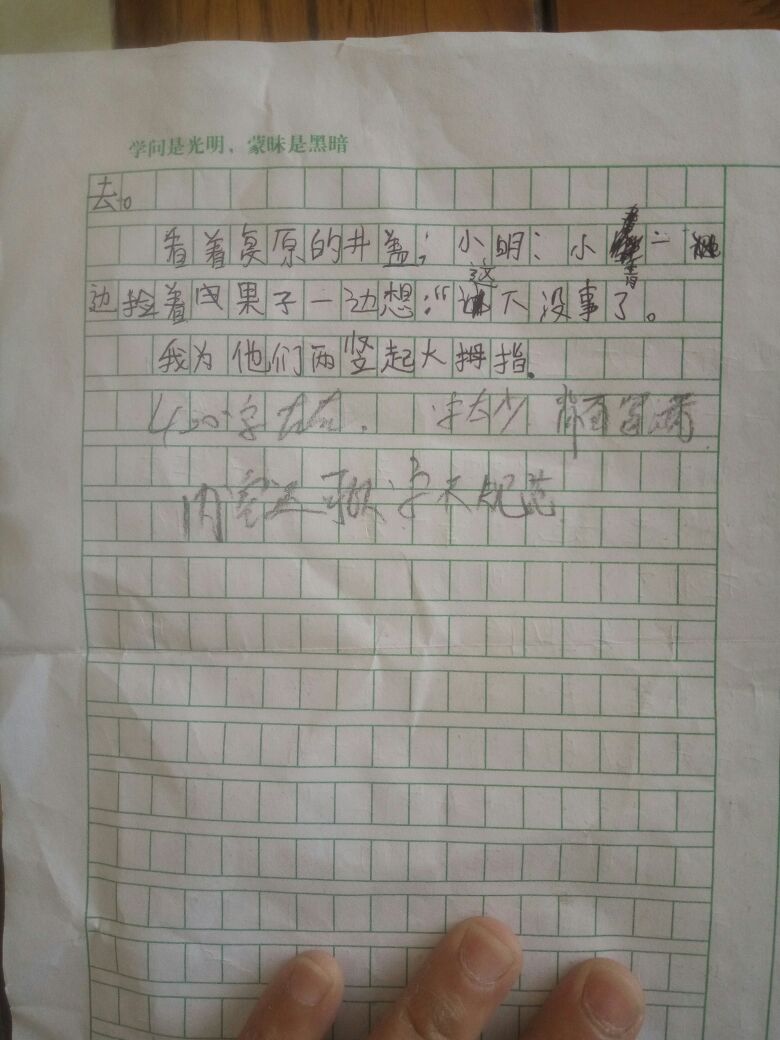 学问是光明，蒙昧是黑暗
去。
看着复原的井盖；小明：小青一
边捡着果子一边想：“这下没事了。
我为他们两竖起大拇指.
400字左右. 字太少
内容还可以 字不规范